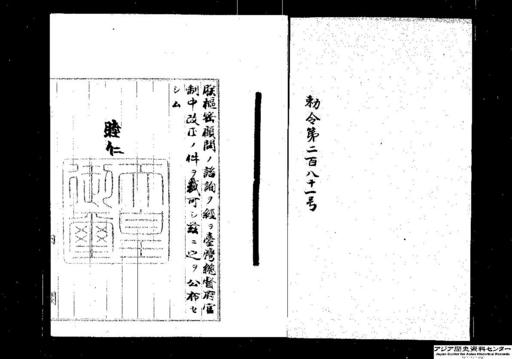 勅令第二百八十一号
朕枢密顧問ノ諮詢ヲ経テ臺灣總督府官
制中改正ノ件ヲ裁可シ茲ニ之ヲ公布セ
シム
睦仁
天皇
御璽
アジア歴史資料センター
Japan Center for Asian Historical Records